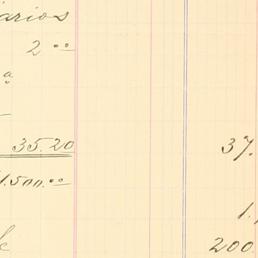 arios
2 ⁰⁰
a
35.20 37.
1.500.⁰⁰
1.
200